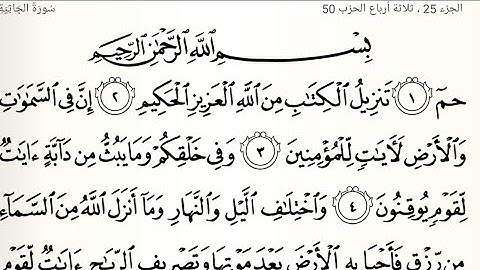 الجزء 25 ، ثلاثة أرباع الحزب 50 سُورَةُ الجَاثِيَةِ
بِسْمِ اللَّهِ الرَّحْمَٰنِ الرَّحِيمِ
حمٓ ١ تَنزِيلُ الْكِتَابِ مِنَ اللَّهِ الْعَزِيزِ الْحَكِيمِ ٢ إِنَّ فِي السَّمَٰوَٰتِ
وَالْأَرْضِ لَآيَٰتٍ لِّلْمُؤْمِنِينَ ٣ وَفِي خَلْقِكُمْ وَمَا يَبُثُّ مِن دَآبَّةٍ ءَايَٰتٌ
لِّقَوْمٍ يُوقِنُونَ ٤ وَاخْتِلَٰفِ الَّيْلِ وَالنَّهَارِ وَمَآ أَنزَلَ اللَّهُ مِنَ السَّمَآءِ
مِن رِّزْقٍ فَأَحْيَا بِهِ الْأَرْضَ بَعْدَ مَوْتِهَا وَتَصْرِيفِ الرِّيَٰحِ ءَايَٰتٌ لِّقَوْمٍ